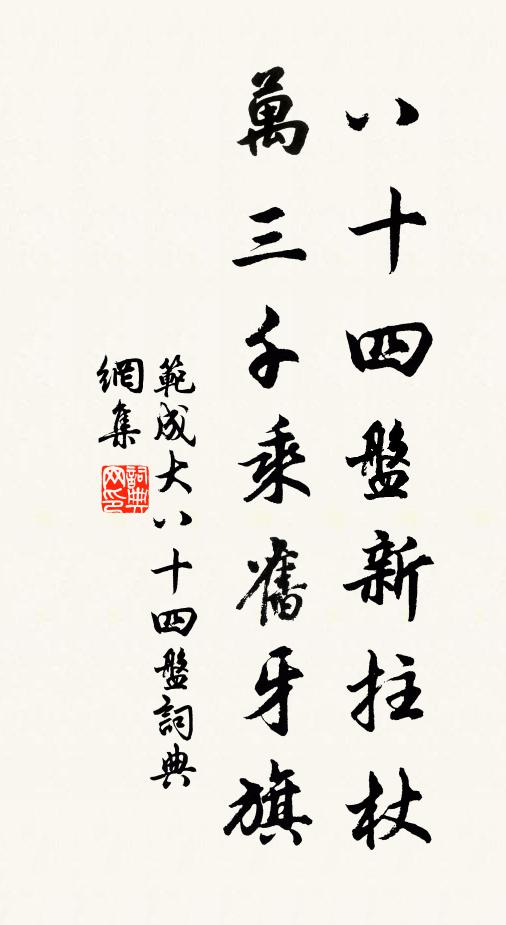 八十四盤新拄杖
萬三千乘舊牙旗
範成大八十四盤詞典
網集
詞典網印